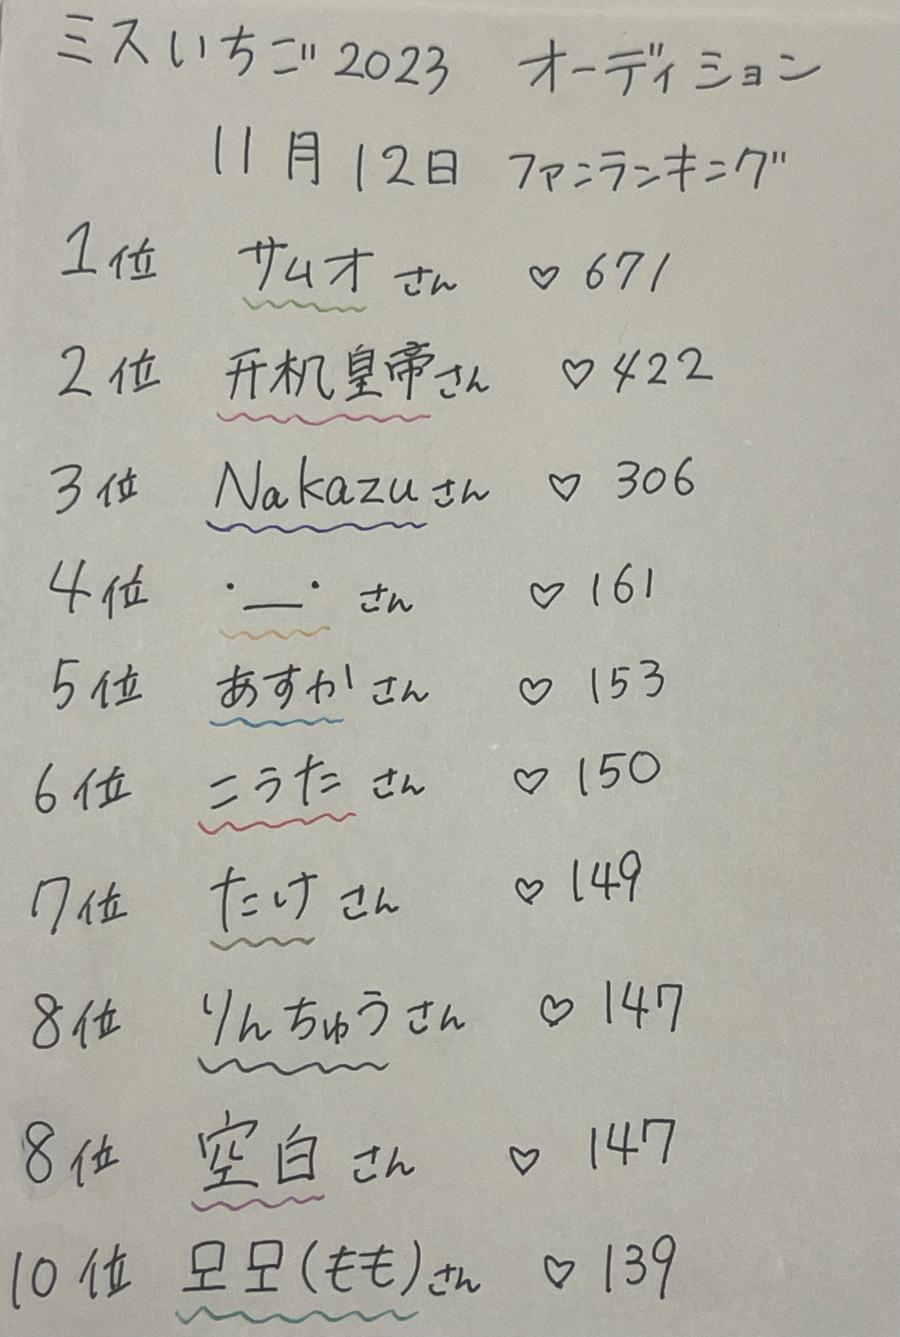 ミスいちご2023 オーディション
11月12日 ファンランキング
1位 サムオさん ♡671
2位 开机皇帝さん ♡422
3位 Nakazuさん ♡306
4位 ・ー・さん ♡161
5位 あすかさん ♡153
6位 こうたさん ♡150
7位 たけさん ♡149
8位 りんちゅうさん ♡147
8位 空白さん ♡147
10位 모모(もも)さん ♡139